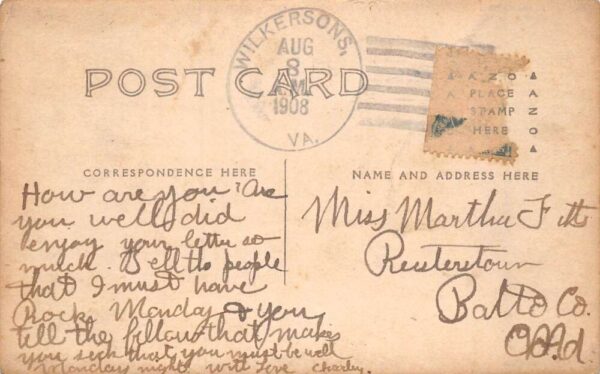 WILKERSONS,
AUG
8
M
1908
VA.
POST CARD
AZO
PLACE
STAMP
HERE
AZO
CORRESPONDENCE HERE
How are you? Are
you well, did
enjoy your letter so
much. Tell the people
that I must have
Rock Monday & you
tell the fellow that makes
you sick that you must be well
Monday night with Love Charley.
NAME AND ADDRESS HERE
Miss Martha Fitts
Reisterstown
Balto Co.
Md.